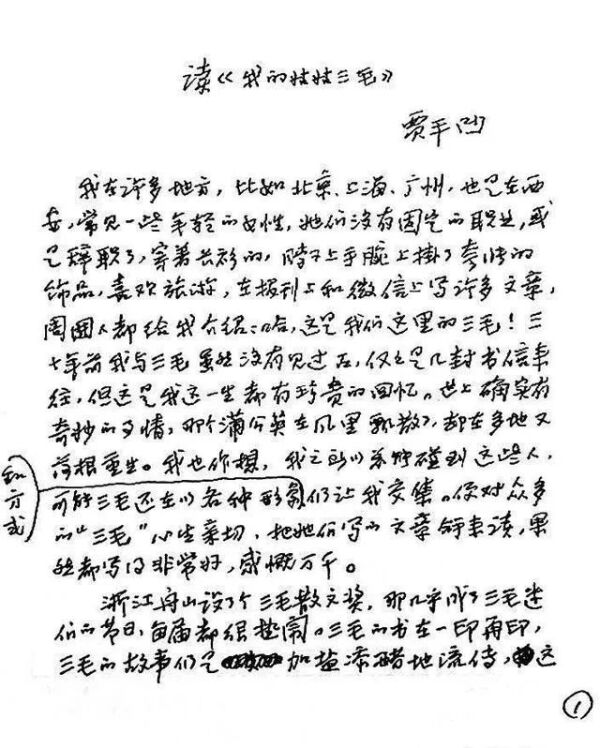 读《我的姑姑三毛》
贾平凹
我在许多地方，比如北京、上海、广州，也包在西
安，常见一些年轻的女性，她们没有固定的职业，或
是辞职了，穿着长衫的，脖子上手腕上掛了夸张的
饰品，喜欢旅游，在报刊上和微信上写许多文章，
周围人都给我介绍：哈，这是我们这里的三毛！三
十年前我与三毛虽然没有见过面，仅仅是几封书信来
往，但这是我这一生都有珍贵的回忆。世上确实有
奇妙的事情，那个蒲公英在风里飘散了，却在多地又
落根重生。我也作想，我之所以不断碰到这些人，
可能三毛还在以各种形象和方式们让我交集。便对众多
的"三毛"心生亲切，把她们写的文章拿来读，果
然都写得非常好，感慨万千。
浙江舟山设了个三毛散文奖，那几乎成了三毛迷
们的节日，每届都很热闹。三毛的书在一印再印，
三毛的故事仍是加盐添醋地流传，这
1